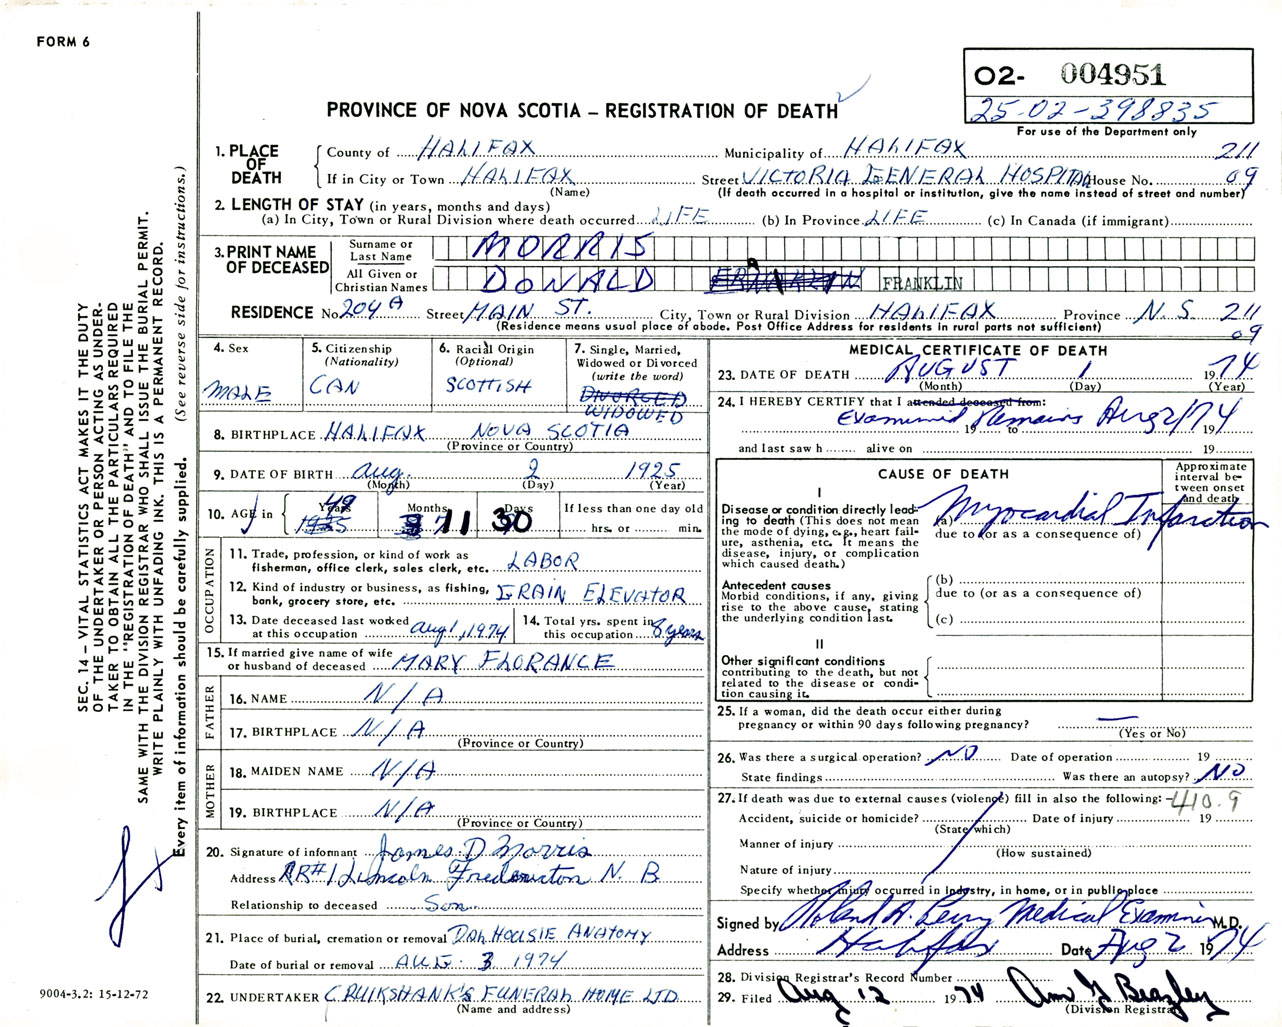 FORM 6
O2- 004951
25-02-398835
For use of the Department only
PROVINCE OF NOVA SCOTIA – REGISTRATION OF DEATH
1. PLACE OF DEATH
County of HALIFAX Municipality of HALIFAX 211
If in City or Town HALIFAX Street VICTORIA GENERAL HOSPITAL House No. 09
(Name) (If death occurred in a hospital or institution, give the name instead of street and number)
2. LENGTH OF STAY (in years, months and days)
(a) In City, Town or Rural Division where death occurred LIFE (b) In Province LIFE (c) In Canada (if immigrant)
3. PRINT NAME OF DECEASED
Surname or Last Name MORRIS
All Given or Christian Names DONALD FRANKLIN FRANKLIN
RESIDENCE No. 204 A Street MAIN ST. City, Town or Rural Division HALIFAX Province N.S. 211
(Residence means usual place of abode. Post Office Address for residents in rural parts not sufficient) 09
4. Sex
MALE
5. Citizenship
(Nationality)
CAN
6. Racial Origin
(Optional)
SCOTTISH
7. Single, Married, Widowed or Divorced
(write the word)
DIVORCED
WIDOWED
8. BIRTHPLACE HALIFAX NOVA SCOTIA
(Province or Country)
9. DATE OF BIRTH Aug. 2 1925
(Month) (Day) (Year)
10. AGE in Years 48 1925 Months 11 Days 30 If less than one day old
hrs. or min.
OCCUPATION
11. Trade, profession, or kind of work as
fisherman, office clerk, sales clerk, etc. LABOR
12. Kind of industry or business, as fishing,
bank, grocery store, etc. GRAIN ELEVATOR
13. Date deceased last worked
at this occupation Aug 1, 1974
14. Total yrs. spent in
this occupation 8 years
15. If married give name of wife
or husband of deceased MARY FLORANCE
FATHER
16. NAME N/A
17. BIRTHPLACE N/A
(Province or Country)
MOTHER
18. MAIDEN NAME N/A
19. BIRTHPLACE N/A
(Province or Country)
20. Signature of informant James D Morris
Address RR#1 Lincoln Fredericton N.B
Relationship to deceased Son
21. Place of burial, cremation or removal DALHOUSIE ANATOMY
Date of burial or removal AUG. 3 1974
22. UNDERTAKER CRUIKSHANK'S FUNERAL HOME LTD.
(Name and address)
MEDICAL CERTIFICATE OF DEATH
23. DATE OF DEATH AUGUST 1 1974
(Month) (Day) (Year)
24. I HEREBY CERTIFY that I attended deceased from:
Examined Remains Aug 2/74
19 to 19
and last saw h alive on 19
CAUSE OF DEATH
Approximate interval between onset and death
I
Disease or condition directly leading to death (This does not mean the mode of dying, e.g., heart failure, asthenia, etc. It means the disease, injury, or complication which caused death.)
(a) Myocardial Infarction
due to (or as a consequence of)
Antecedent causes
Morbid conditions, if any, giving rise to the above cause, stating the underlying condition last.
(b)
due to (or as a consequence of)
(c)
II
Other significant conditions
contributing to the death, but not related to the disease or condition causing it.
25. If a woman, did the death occur either during
pregnancy or within 90 days following pregnancy? —
(Yes or No)
26. Was there a surgical operation? NO Date of operation 19
State findings Was there an autopsy? NO
27. If death was due to external causes (violence) fill in also the following: 410.9
Accident, suicide or homicide? Date of injury 19
(State which)
Manner of injury
(How sustained)
Nature of injury
Specify whether injury occurred in industry, in home, or in public place
Signed by Roland A. Perry Medical Examiner M.D.
Address Halifax Date Aug 2 1974
28. Division Registrar's Record Number
29. Filed Aug 12 1974 Ann G Beazley
(Division Registrar)
SEC. 14 – VITAL STATISTICS ACT MAKES IT THE DUTY
OF THE UNDERTAKER OR PERSON ACTING AS UNDER-
TAKER TO OBTAIN ALL THE PARTICULARS REQUIRED
IN THE "REGISTRATION OF DEATH" AND TO FILE THE
SAME WITH THE DIVISION REGISTRAR WHO SHALL ISSUE THE BURIAL PERMIT.
WRITE PLAINLY WITH UNFADING INK. THIS IS A PERMANENT RECORD.
Every item of information should be carefully supplied. (See reverse side for instructions.)
9004-3.2: 15-12-72